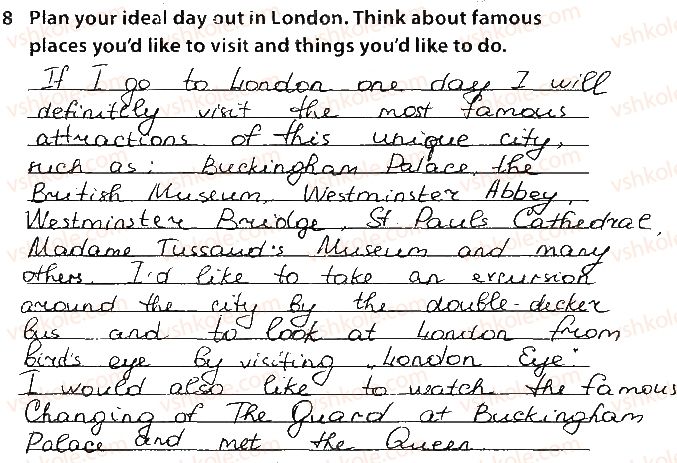 8 Plan your ideal day out in London. Think about famous
places you'd like to visit and things you'd like to do.
If I go to London one day I will
definitely visit the most famous
attractions of this unique city,
such as: Buckingham Palace, the
British Museum, Westminster Abbey,
Westminster Bridge, St. Pauls Cathedral,
Madame Tussaud's Museum and many
others. I'd like to take an excursion
around the city by the double-decker
bus and to look at London from
bird's eye by visiting „London Eye"
I would also like to watch the famous
Changing of The Guard at Buckingham
Palace and met the Queen.